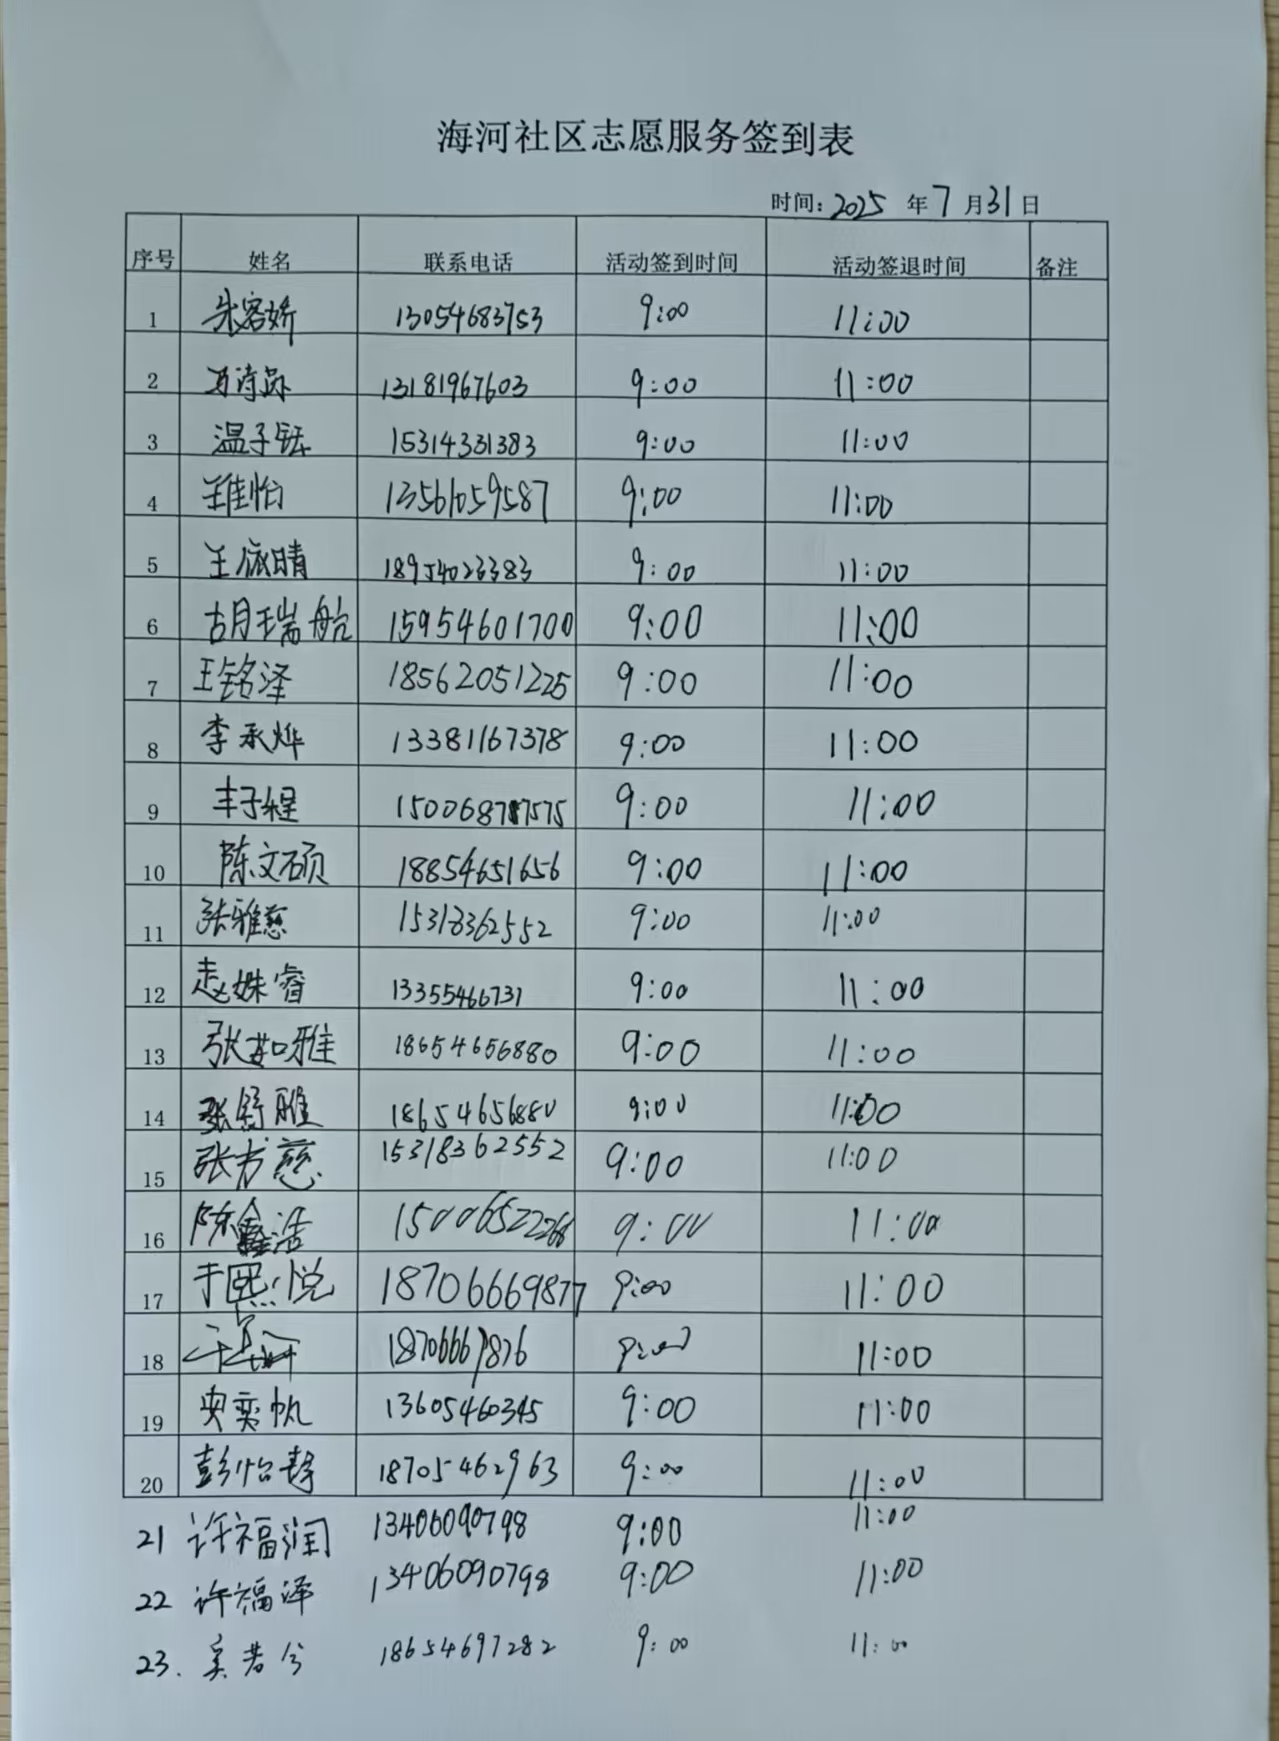 海河社区志愿服务签到表
时间:2025 年7月31日
序号 姓名 联系电话 活动签到时间 活动签退时间 备注
1 朱容娇 13054683753 9:00 11:00
2 万诗 13181967603 9:00 11:00
3 温子钰 15314331383 9:00 11:00
4 王佳怡 13561059587 9:00 11:00
5 王依晴 18954023383 9:00 11:00
6 胡瑞航 15954601700 9:00 11:00
7 王铭泽 18562051225 9:00 11:00
8 李承烨 13381167378 9:00 11:00
9 丰子程 9:00 11:00
10 陈文硕 18854651656 9:00 11:00
11 张雅慈 15318362552 9:00 11:00
12 赵姝睿 13355466731 9:00 11:00
13 张茹雅 18654656880 9:00 11:00
14 张舒雅 18654656880 9:00 11:00
15 张方慈 15318362552 9:00 11:00
16 陈鑫浩 9:00 11:00
17 于熙悦 18706669877 9:00 11:00
18 9:00 11:00
19 奕帆 13605460345 9:00 11:00
20 彭怡静 18705462963 9:00 11:00
21 许福润 13406090798 9:00 11:00
22 许福泽 13406090798 9:00 11:00
23. 吴若兮 18654697282 9:00 11:00